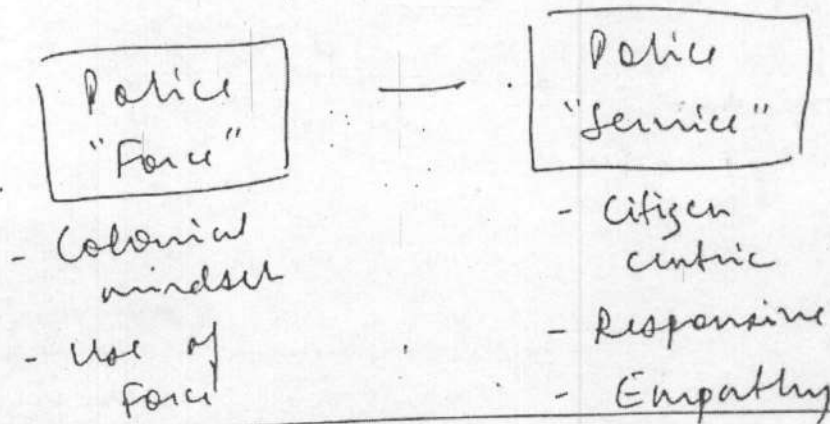 Police
"Force"
- Colonial
mindset
- Use of
Force
Police
"Service"
- Citizen
centric
- Responsive
- Empathy